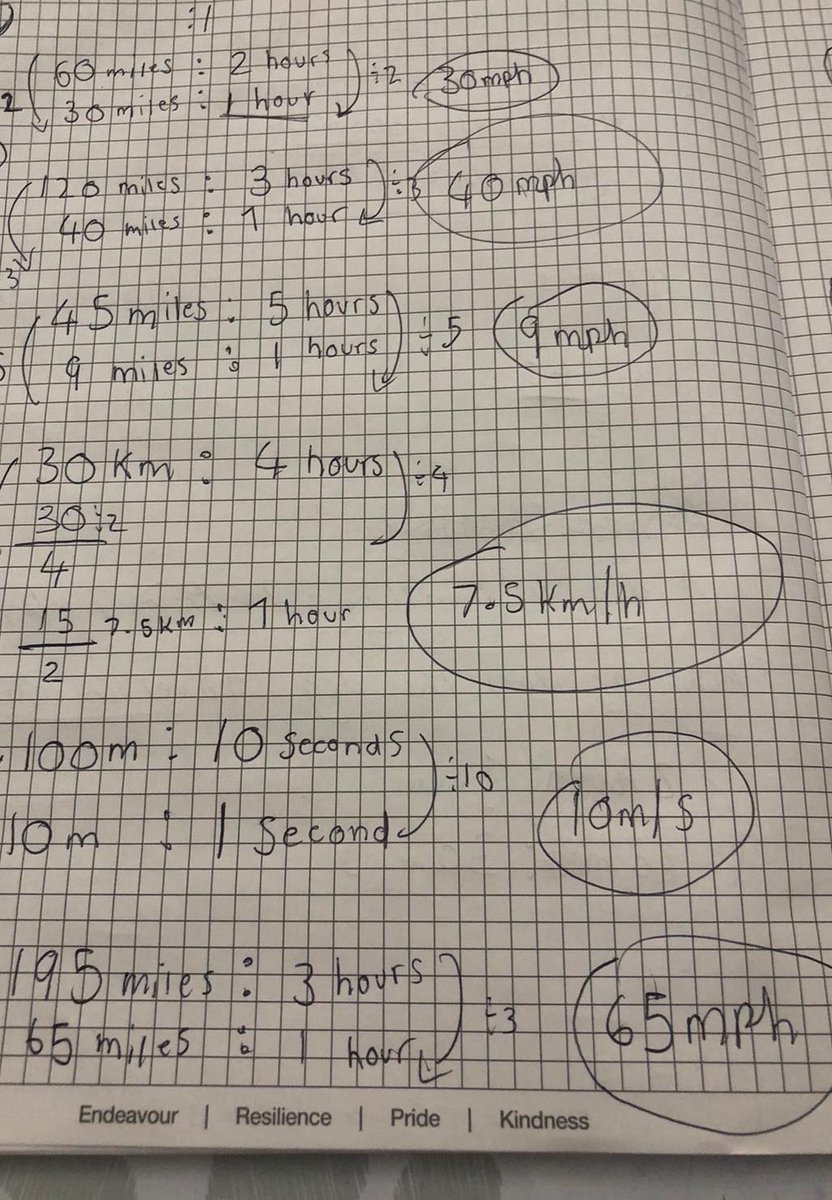 :1
60 miles : 2 hours ÷2 30mph
2 30 miles : 1 hour
120 miles : 3 hours ÷3 40 mph
40 miles : 1 hour
3
45 miles : 5 hours ÷5 9 mph
9 miles : 1 hours
30 Km : 4 hours ÷4
30÷2
4
15 7.5km : 1 hour 7.5 Km/h
2
100m : 10 seconds ÷10
10m : 1 second 10m/s
195 miles : 3 hours ÷3 65mph
65 miles : 1 hour
Endeavour | Resilience | Pride | Kindness